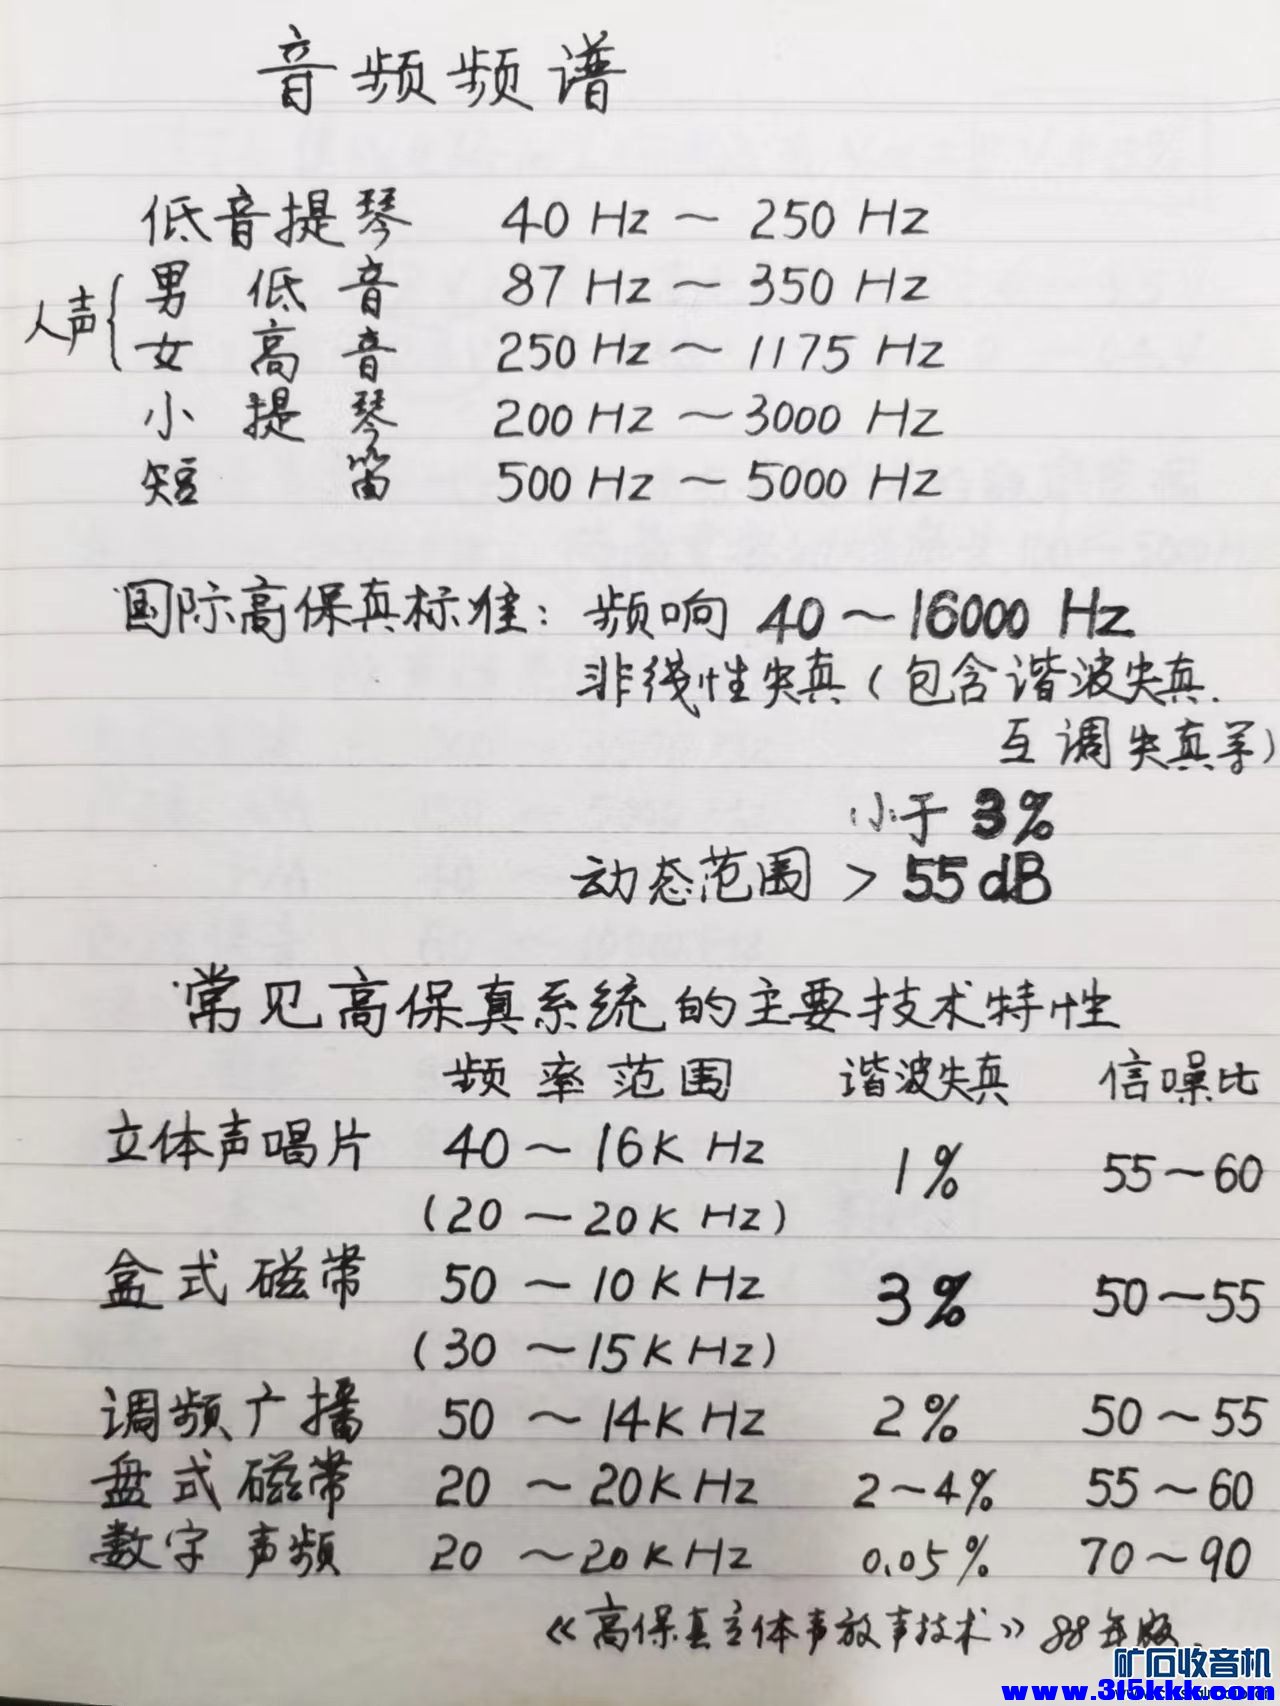 音频频谱
低音提琴 40 Hz ~ 250 Hz
人声{ 男低音 87 Hz ~ 350 Hz
女高音 250 Hz ~ 1175 Hz
小提琴 200 Hz ~ 3000 Hz
短笛 500 Hz ~ 5000 Hz
国际高保真标准: 频响 40 ~ 16000 Hz
非线性失真 (包含谐波失真.
互调失真等)
小于 3%
动态范围 > 55 dB
常见高保真系统的主要技术特性
频率范围 谐波失真 信噪比
立体声唱片 40 ~ 16K Hz 1% 55~60
(20 ~ 20K Hz)
盒式磁带 50 ~ 10K Hz 3% 50~55
(30 ~ 15K Hz)
调频广播 50 ~ 14K Hz 2% 50~55
盘式磁带 20 ~ 20K Hz 2~4% 55~60
数字声频 20 ~ 20K Hz 0.05% 70~90
《高保真立体声放声技术》88年版.
矿石收音机
www.315kkk.com